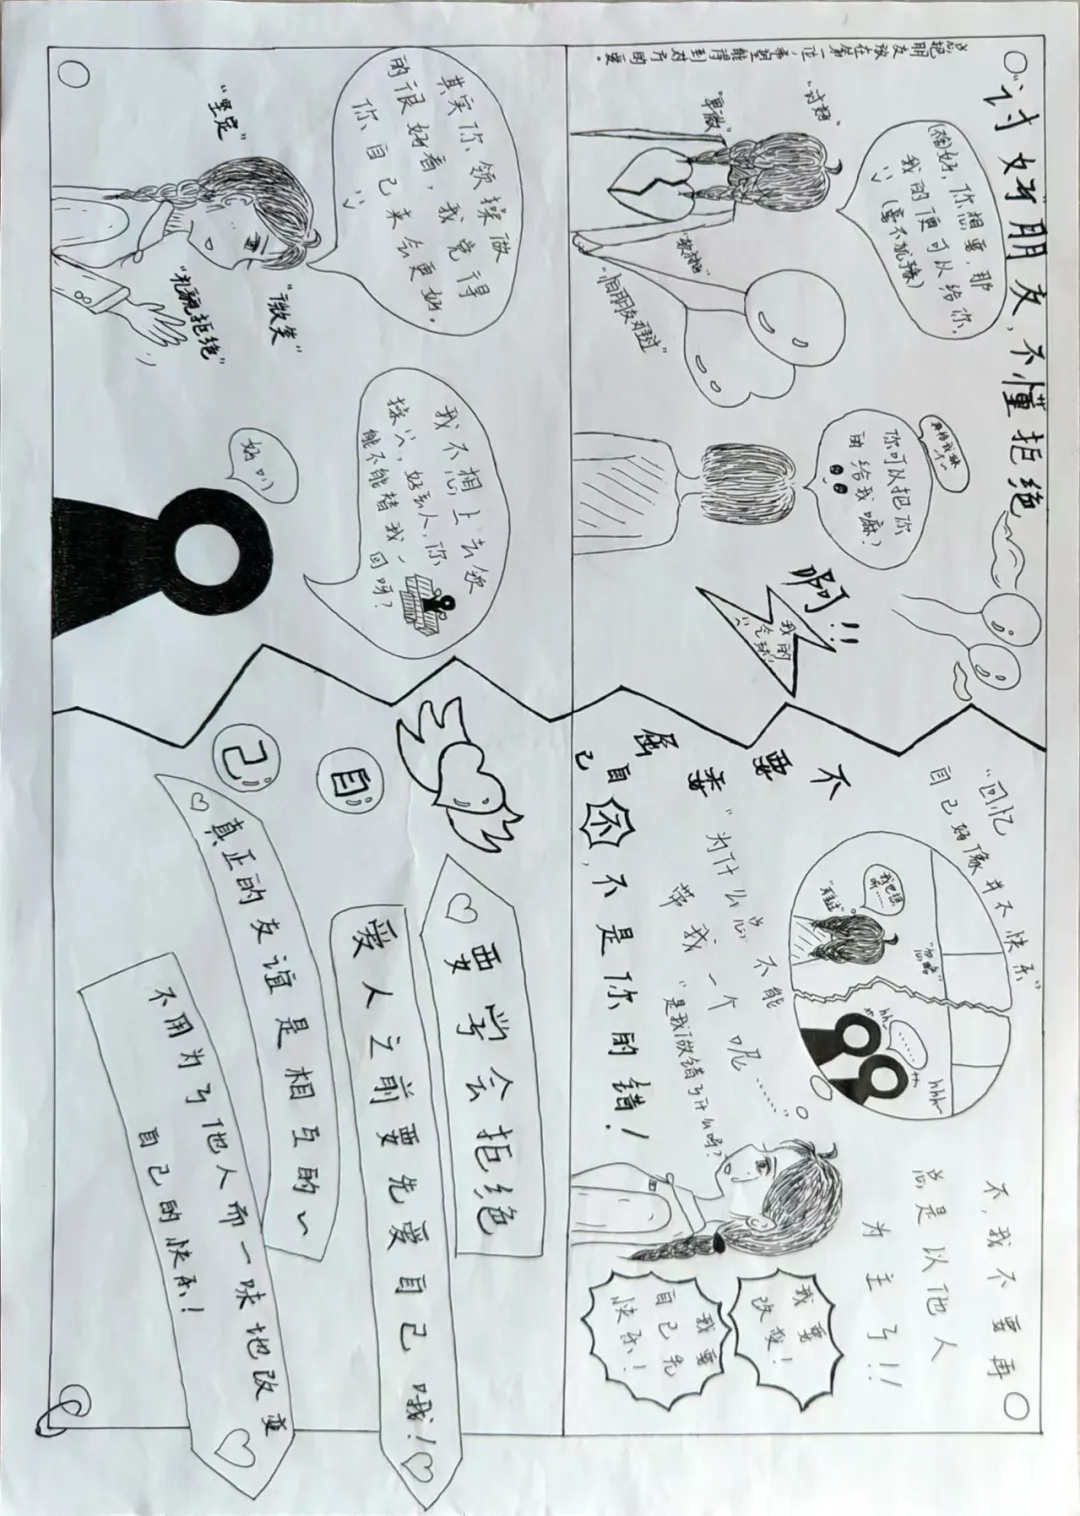 "讨好"朋友，不懂拒绝
总把
朋友
放在第一位，希望能得到对方
"讨好"
"卑微"
我的便可以给你。
你可以把你
的给我嘛？
啊!!
我的
气球!
"怕朋友难过"
"回忆"
自己好像并不快乐"
"忽略"
hhh
hhh
不，我不要再
总是以他人
为主了!!
不要
责
自己
"为什么总不能
带我一个呢……"
"是我做错了什么吗？"
不，不是你的错！
我要
改变！
我要
自己先
快乐！
其实你领操做
的很好看，我觉得
你自己来会更好。
"坚定"
"微笑"
"礼貌拒绝"
我不想上去领
操，好丢人，你
能不能替我一
回呀？
好叭
自己
要学会拒绝
爱人之前要先爱自己哦！
真正的友谊是相互的~
不用为了他人而一味地改变
自己的快乐！